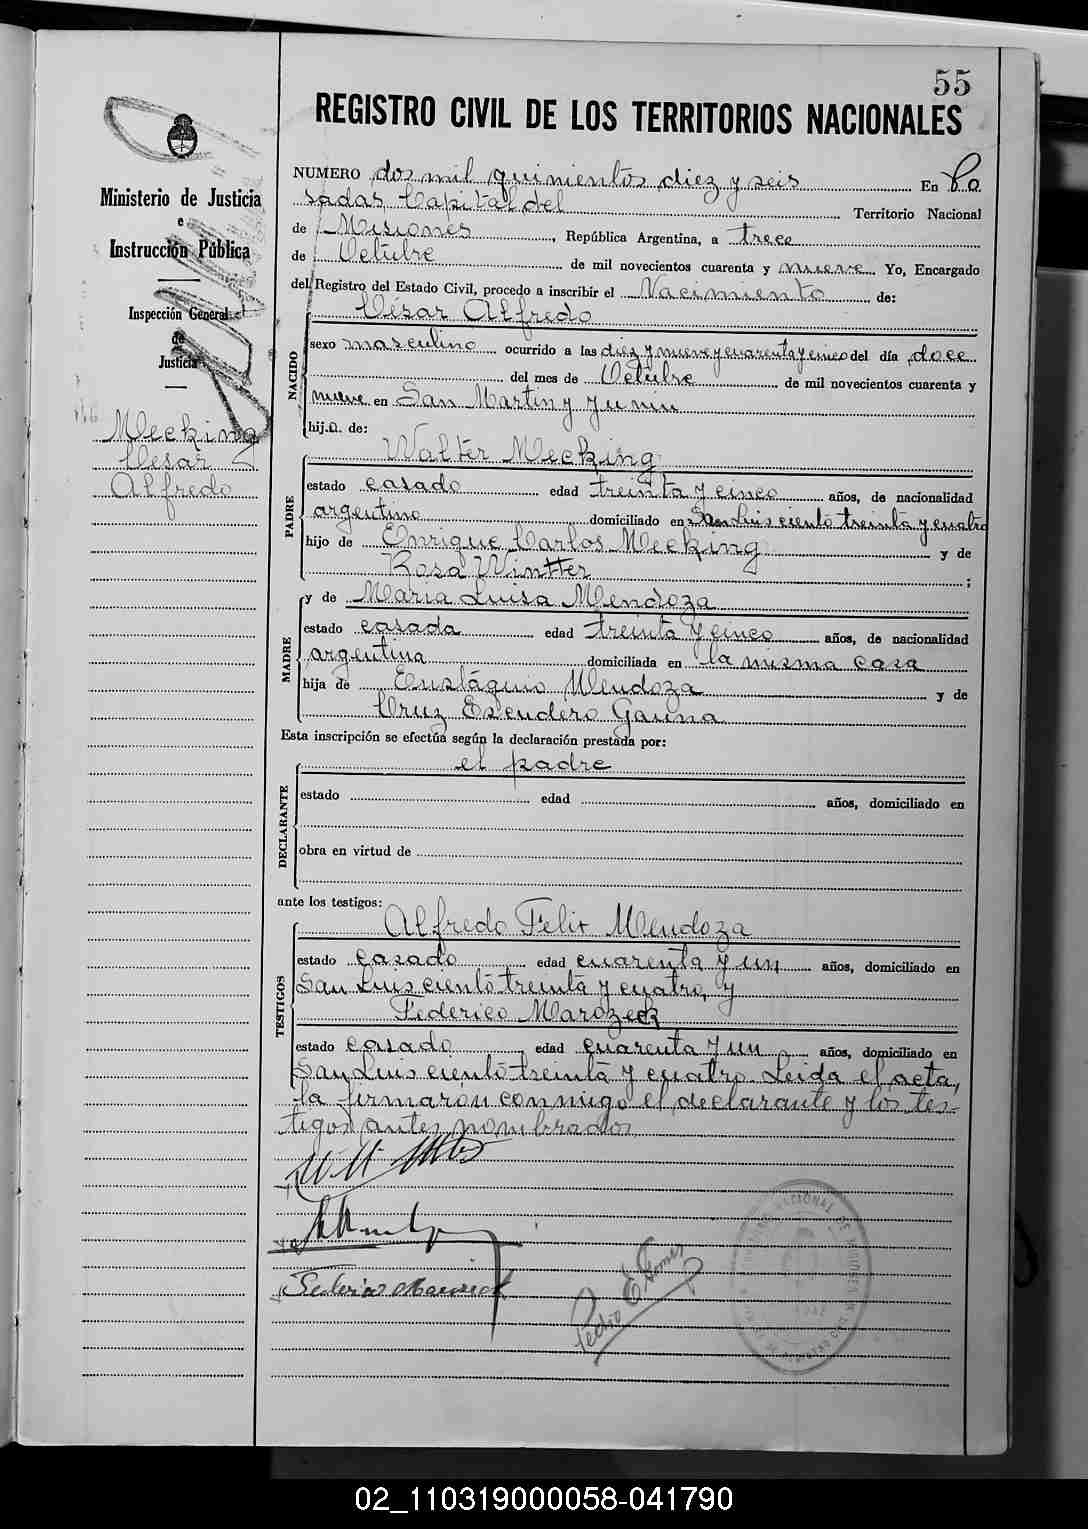 55
REGISTRO CIVIL DE LOS TERRITORIOS NACIONALES
Ministerio de Justicia
e
Instrucción Pública
Inspección General
de
Justicia
Mecking
Cesar
Alfredo
NUMERO dos mil quinientos diez y seis En Po
sadas Capital del Territorio Nacional
de Misiones, República Argentina, a trece
de Octubre de mil novecientos cuarenta y nueve Yo, Encargado
del Registro del Estado Civil, procedo a inscribir el Nacimiento de:
César Alfredo
NACIDO
sexo masculino ocurrido a las diez y nueve y cuarenta y cinco del día doce
del mes de Octubre de mil novecientos cuarenta y
nueve en San Martin y Junin
hijo. de:
PADRE
Walter Mecking
estado casado edad treinta y cinco años, de nacionalidad
argentino domiciliado en San Luis ciento treinta y cuatro
hijo de Enrique Carlos Mecking y de
Rosa Wintter ;
MADRE
y de Maria Luisa Mendoza
estado casada edad treinta y cinco años, de nacionalidad
argentina domiciliada en la misma casa
hija de Eustáquio Mendoza y de
Cruz Escudero Gauna
Esta inscripción se efectúa según la declaración prestada por:
DECLARANTE
el padre
estado edad años, domiciliado en
obra en virtud de
ante los testigos:
TESTIGOS
Alfredo Felix Mendoza
estado casado edad cuarenta y un años, domiciliado en
San Luis ciento treinta y cuatro, y
Federico Marozeck
estado casado edad cuarenta y un años, domiciliado en
San Luis ciento treinta y cuatro. Leida el acta,
la firmaron conmigo el declarante y los tes-
tigos antes nombrados
Pedro E. Gomez
02_110319000058-041790